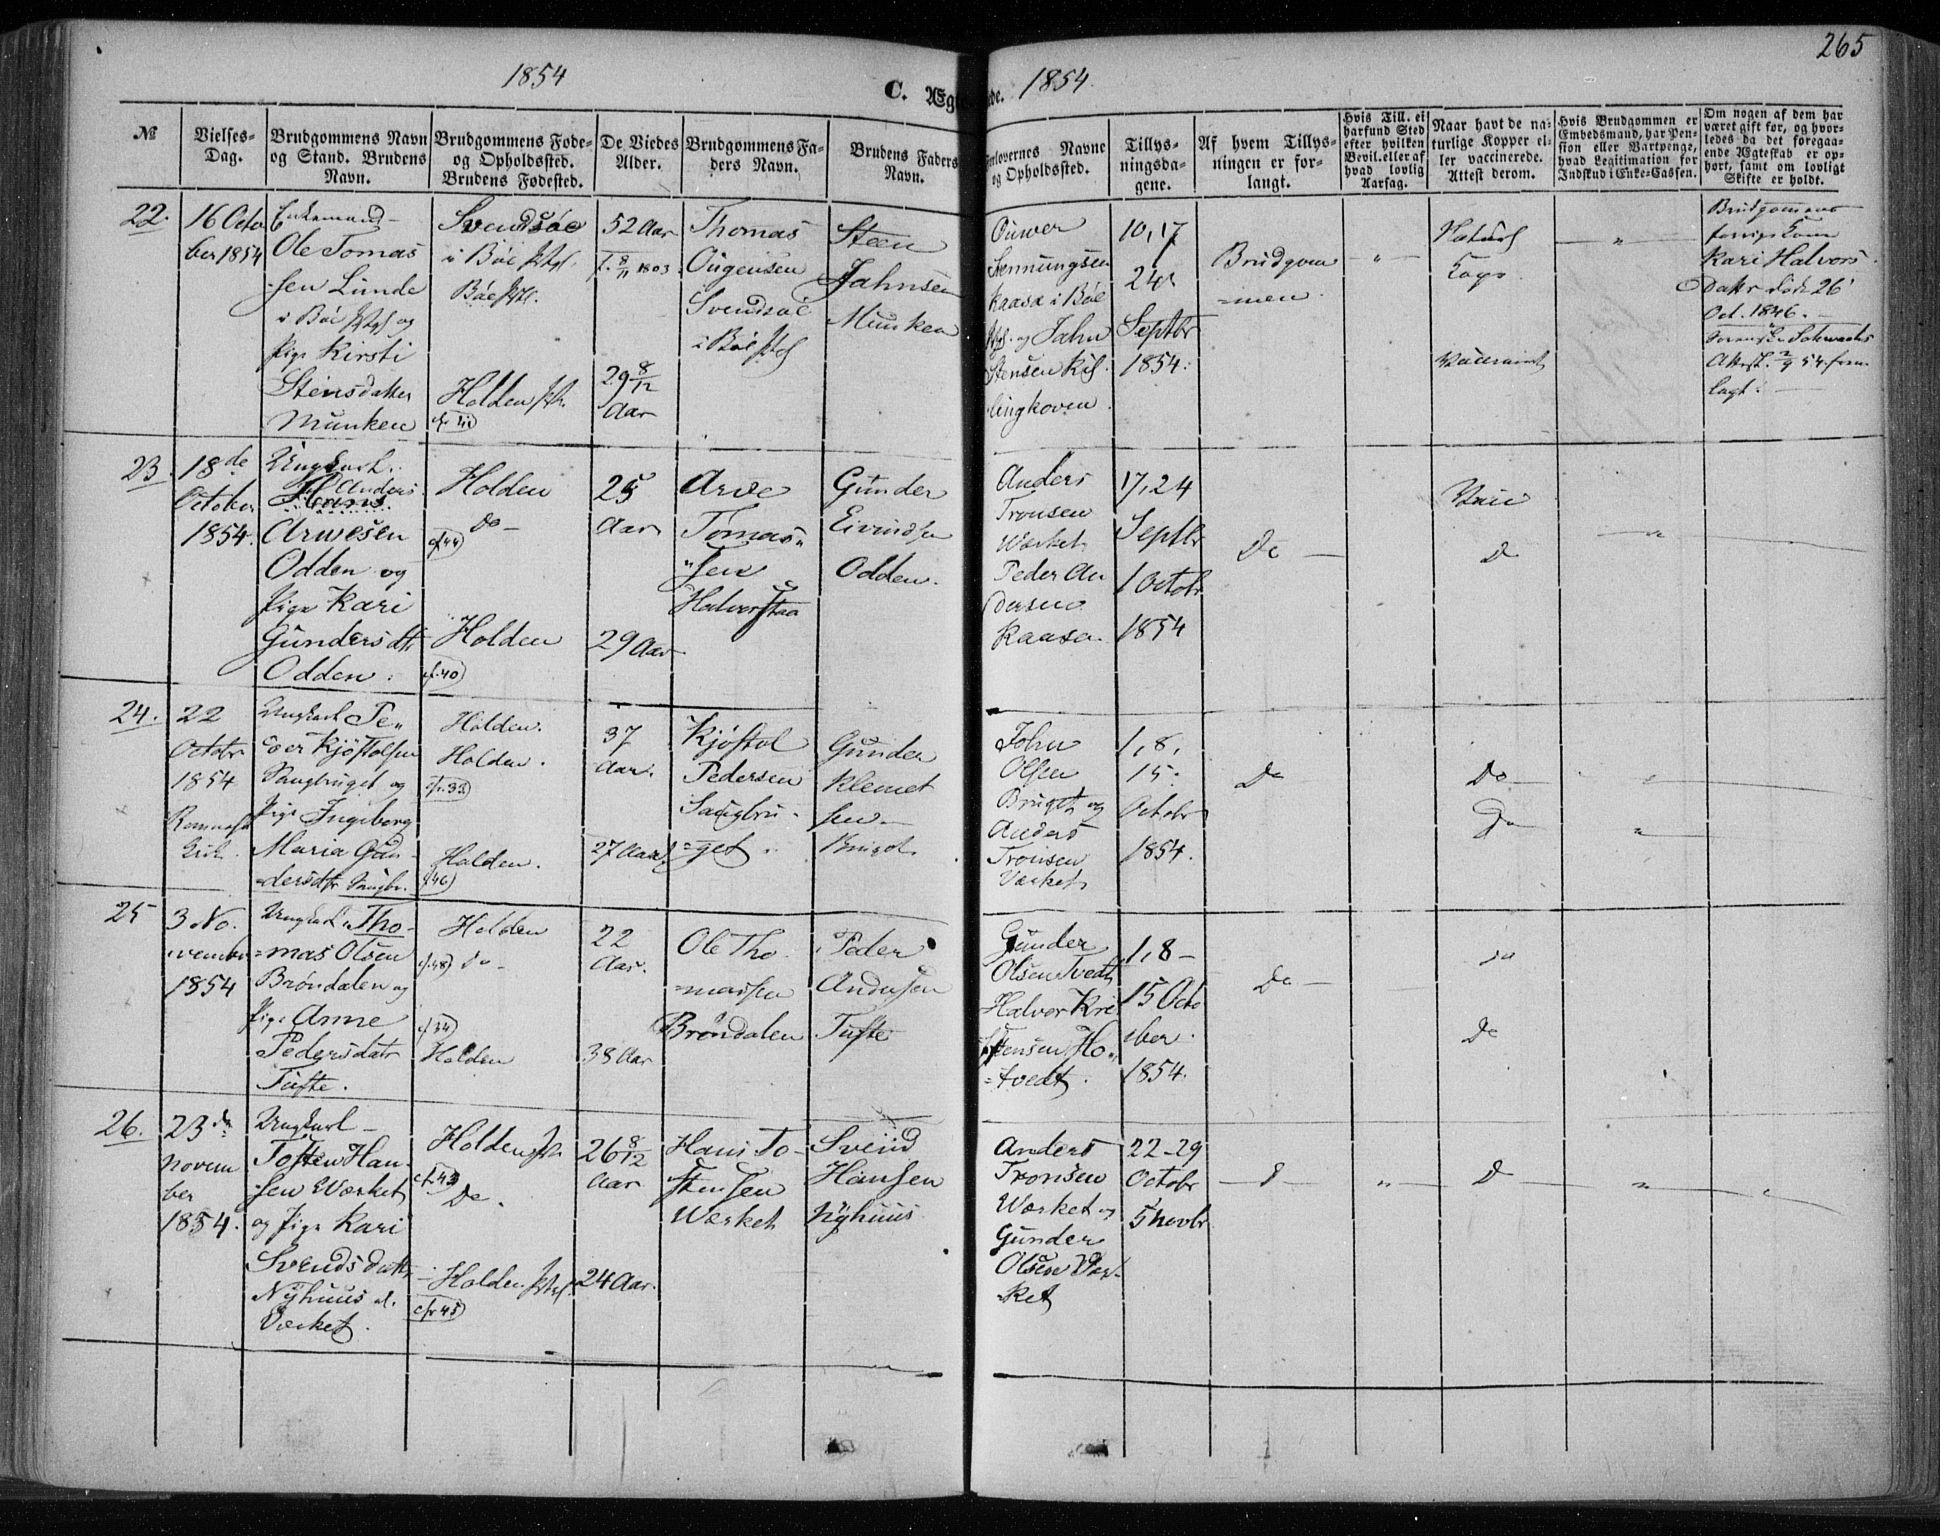 265
1854
C. Ægte
de. 1854.
№
Vielses-
Dag.
Brudgommens Navn
og Stand. Brudens
Navn.
Brudgommens Føde-
og Opholdssted.
Brudens Fødested.
De Viedes
Alder.
Brudgommens Fa-
ders Navn.
Brudens Faders
Navn.
Forlovernes Navne
og Opholdssted.
Tillys-
ningsda-
gene.
Af hvem Tillys-
ningen er for-
langt.
Hvis Till. ei
harfund Sted
efter hvilken
Bevil. eller af
hvad lovlig
Aarsag.
Naar havt de na-
turlige Kopper el-
ler vaccinerede.
Attest derom.
Hvis Brudgommen er
Embedsmand, har Pen-
sion eller Vartpenge,
hvad Legitimation for
Indskud i Enke-Cassen.
Om nogen af dem har
været gift før, og hvor-
ledes da det foregaa-
ende Ægteskab er op-
hørt, samt om lovligt
Skifte er holdt.
22.
16 Octo
ber 1854
Enkemand
Ole Tomas
sen Lunde
i Bøe og
Pige Kirsti
Steensdatter
Munken
Svendsøe
i Bøe
Bøe
Holden
52 Aar
f. 8/11 1803
29 8/12
Aar
Thomas
Ougensen
Svendsøe
i Bøe
Steen
Jahnsen
Munken
Ouwer
Stennungsen
Kaasa i Bøe
og Jahn
Stensen Kis
lingkoven.
10, 17
24de
Septbr
1854.
Brudgom
=men.
"
Naturl
Kop
Vaccineret
"
Brudgommens
forrige Kone
Kari Halvors
Datter døde 26
Oct. 1846.
Attest 2/9 54 frem
lagt.
23.
18de
October
1854.
Ungkarl
Hans Anders
Arvesen
Odden og
Pige Kari
Gundersdtr
Odden.
Holden
do
cfr 44)
Holden
cfr. 40)
25
Aar
29 Aar
Arve
Tomas
sen
Halvorstaa
Gunder
Eivindsen
Odden.
Anders
Tronsen
Værket
Peder An
dersen
Kaasa
17, 24
Septbr
1 Octobr
1854
Do
Vacc
D
"
24.
22
Octobr
1854
Romnæs
Kirk.
Ungkarl Pe
der Kjøstolsen
Saugbruget og
Pige Ingeborg
Maria Gun
=dersdtr Saugbr.
Holden.
Holden.
cfr. 33)
Holden.
46)
37
Aar.
27 Aar
Kjøstol
Pedersen
Saugbru
=get.
Gunder
Klemet
sen
Bruget
John
Olsen
Bruget og
Anders
Tronsen
Værket
1, 8,
15.
Octobr
1854.
Do
Do
Do
"
25
3 No
vember
1854
Ungkarl Tho
=mas Olsen
Brøndalen og
Pige Anne
Pedersdatr
Tufte.
Holden
cfr. 48) do
cfr 34)
Holden
22
Aar.
38 Aar
Ole Tho
=massen
Brøndalen
Peder
Andersen
Tufte
Gunder
Olsen Tvedt
Halvor Kri
stensen Ho
=tvedt.
1, 8
15 Octo
ber.
1854.
Do
do
Do
26.
23de
Novem
ber
1854.
Ungkarl
Tosten Han
sen Værket
og Pige Kari
Svendsdatter
Nyhuus
Værket.
Holden
cfr. 43
Do.
Holden
cfr 45)
26 8/12
Aar
24 Aar.
Hans To
stensen
Værket
Svend
Hansen
Nyhuus
Anders
Tronsen
Værket og
Gunder
Olsen Vær
=ket
22-29
Octobr
5 Novbr
d
"
D
"
"